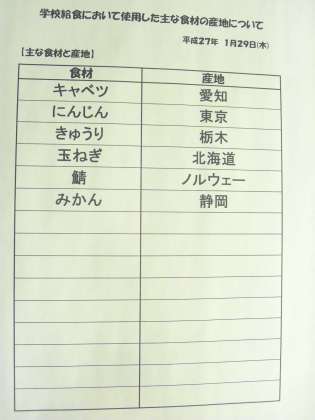 学校給食において使用した主な食材の産地について
平成27年 1月29日(木)
【主な食材と産地】
食材 産地
キャベツ 愛知
にんじん 東京
きゅうり 栃木
玉ねぎ 北海道
鯖 ノルウェー
みかん 静岡